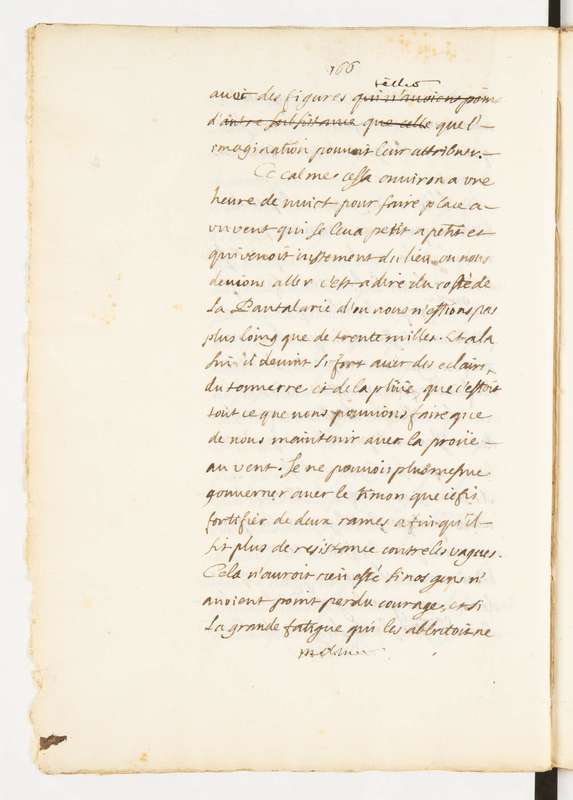 166
telles
auec des figures qui n'auoient point
d'autre subsistance que celle que l'-
imagination pouuoit leur attribuer.-
Ce calme cessa enuiron a vne
heure de nuict pour faire place a-
vn vent qui se leua petit a petit et
qui venoit iustement du lieu ou nous
deuions aller c'est a dire du costé de
la Pantalarie d'ou nous n'estions pas
plus loing que de trente milles. Et a la
fin il deuint si fort auec des eclairs,
du tonnerre et de la plüie, que c'estoit
tout ce que nous pouuions faire que
de nous maintenir auec la proüe-
au vent. Je ne pouuois plus mesme
gouuerner auec le timon que ie fis
fortifier de deux rames afin qu'il-
fit plus de resistance contre les vagues.
Cela n'auroit rien osté si nos gens n'
auoient point perdu courage, et si
la grande fatigue qui les abbatoit ne